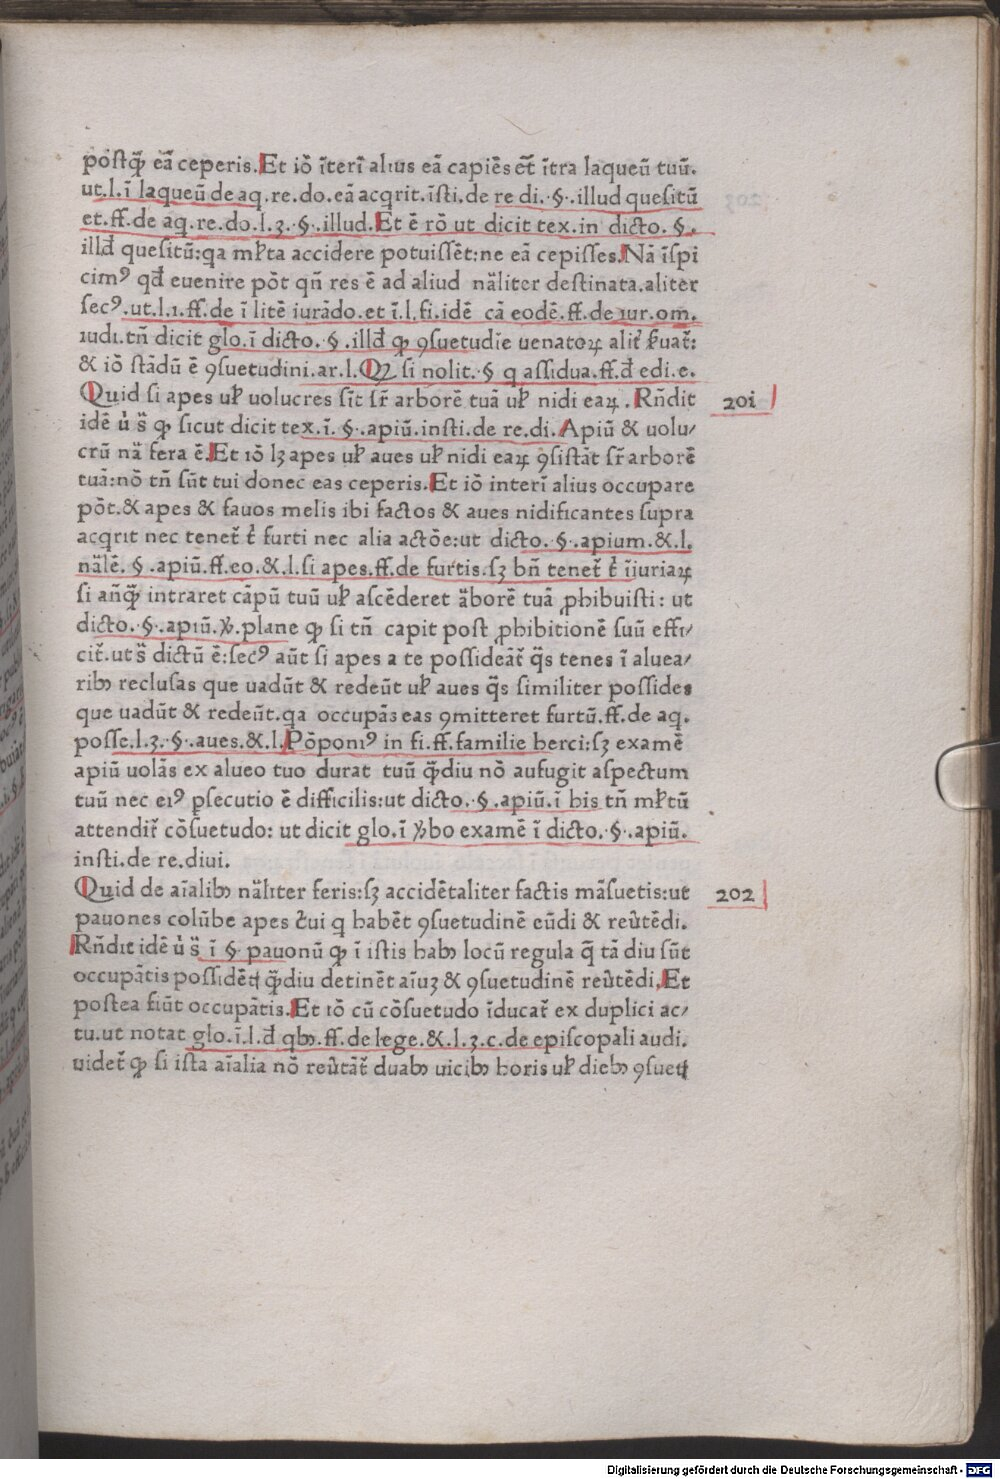 postꝙ̃ eã ceperis. Et iõ ĩteri̅ alius eã capiẽs ẽt ĩtra laqueũ tuũ.
ut. l. ĩ laqueũ de aq. re. do. eã acqrit. ĩsti. de re di. §. illud quesitũ
et. ff. de aq. re. do. l. 3. §. illud. Et ẽ rõ ut dicit tex. in dicto. §.
illđ quesitũ: qa mꝉta accidere potuissẽt: ne eã cepisses. Nã ĩspi
cimꝰ qđ euenire põt qñ res ẽ ad aliud nãliter destinata. aliter
secꝰ. ut. l. 1. ff. de ĩ litẽ iurãdo. et ĩ. l. fi. idẽ cã eodẽ. ff. de iur. om̃.
iudi. tñ dicit glo. ĩ dicto. §. illđ ꝙ ꝯsuetudĩe uenatoꝝ aliť ẜuať:
& iõ stãdũ ẽ ꝯsuetudini. ar. l. Qꝫ si nolit. § q assidua. ff. đ edi. e.
Quid si apes uꝉ uolucres sĩt sr̃ arborẽ tuã uꝉ nidi eaꝝ. Rñdit
201
idẽ u̇ s̃ ꝙ sicut dicit tex. ĩ. §. apiũ. insti. de re. di. Apiũ & uolu⸗
crũ nã fera ẽ. Et iõ lꝫ apes uꝉ aues uꝉ nidi eaꝝ ꝯsistãt sr̃ arborẽ
tuã: nõ tñ sũt tui donec eas ceperis. Et iõ interĩ alius occupare
põt. & apes & fauos melis ibi factos & aues nidificantes supra
acqrit nec teneť ť furti nec alia actõe: ut dicto. §. apium. &. l.
nãlẽ. §. apiũ. ff. eo. &. l. si apes. ff. de furtis. sꝫ bñ teneť ť ĩiuriaꝝ
si añꝙ̃ intraret cãpũ tuũ uꝉ ascẽderet ãborẽ tuã ꝓhibuisti: ut
dicto. §. apiũ. ꝟ. plane ꝙ si tñ capit post ꝓhibitionẽ suũ effi⸗
ciť. ut s̃ dictũ ẽ: secꝰ aũt si apes a te possideãť q̃s tenes ĩ aluea⸗
ribꝫ reclusas que uadũt & redeũt uꝉ aues q̃s similiter possides
que uadũt & redeũt. qa occupãs eas ꝯmitteret furtũ. ff. de aq.
posse. l. 3. §. aues. &. l. Põponiꝰ in fi. ff. familie herci: sꝫ examẽ
apiũ uolãs ex alueo tuo durat tuũ q̃diu nõ aufugit aspectum
tuũ nec eiꝰ ꝑsecutio ẽ difficilis: ut dicto. §. apiũ. ĩ his tñ mꝉtũ
attendiť cõsuetudo: ut dicit glo. ĩ ꝟbo examẽ ĩ dicto. §. apiũ.
insti. de re. diui.
Quid de aĩalibꝫ nãliter feris: sꝫ accidẽtaliter factis mãsuetis: ut
202
pauones colũbe apes c̃ui q habẽt ꝯsuetudinẽ eũdi & reũtẽdi.
Rñdit idẽ u̇ s̃ ĩ § pauonũ ꝙ ĩ istis habꝫ locũ regula q̃ tã diu sũt
occupãtis possidẽtꝭ q̃diu detinẽt aĩuꝫ & ꝯsuetudinẽ reũtẽdi. Et
postea fiũt occupãtis. Et iõ cũ cõsuetudo ĩducať ex duplici ac⸗
tu. ut notat glo. ĩ. l. đ qbꝫ. ff. de lege. &. l. 3. c. de episcopali audi.
uideť ꝙ si ista aĩalia nõ reũtãť duabꝫ uicibꝫ horis uꝉ diebꝫ ꝯsuetꝭ
Digitalisierung gefördert durch die Deutsche Forschungsgemeinschaft - DFG